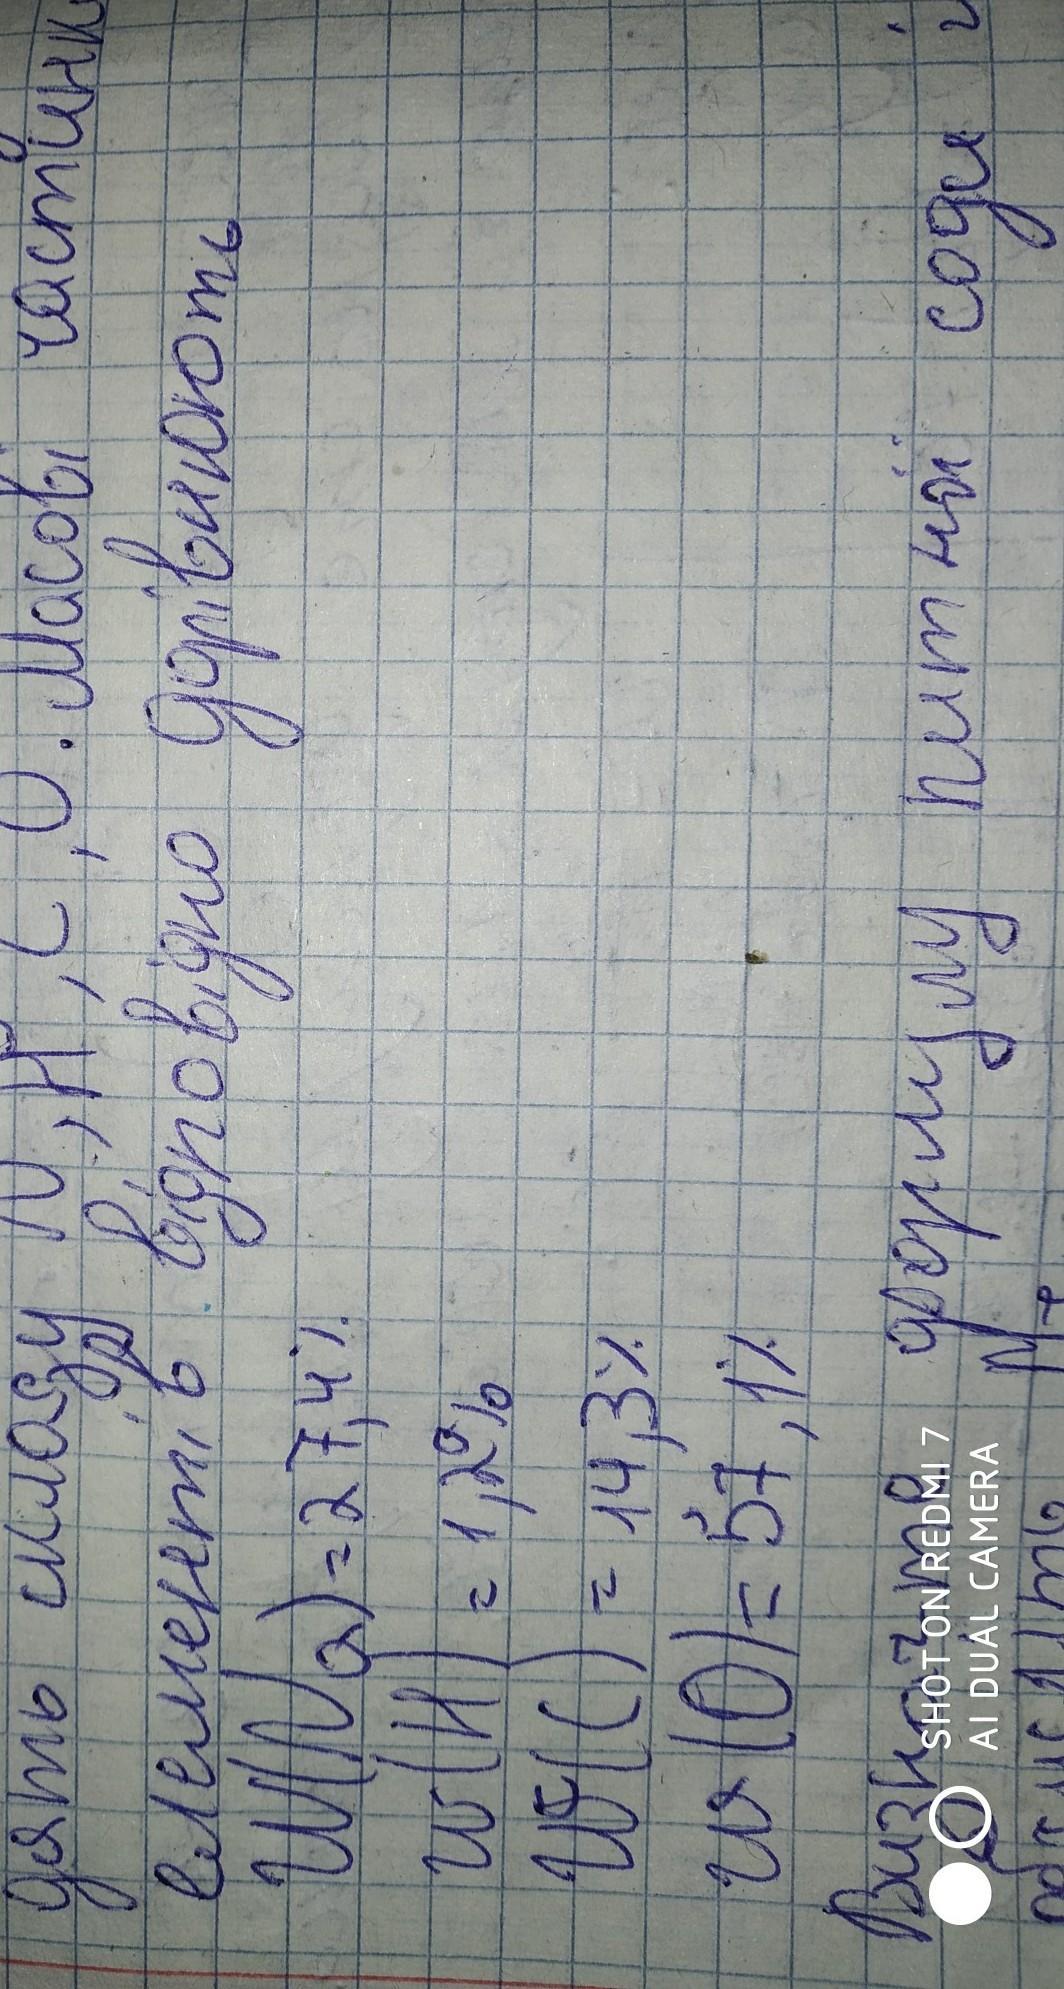 складу Na, H, C, O. Масові частинки
елементів відповідно дорівнюють
W(Na)=27,4%
w(H) = 1,2%
W(C) = 14,3%
w(O)= 57,1%
формулу питної соди і
SHOT ON REDMI 7
AI DUAL CAMERA